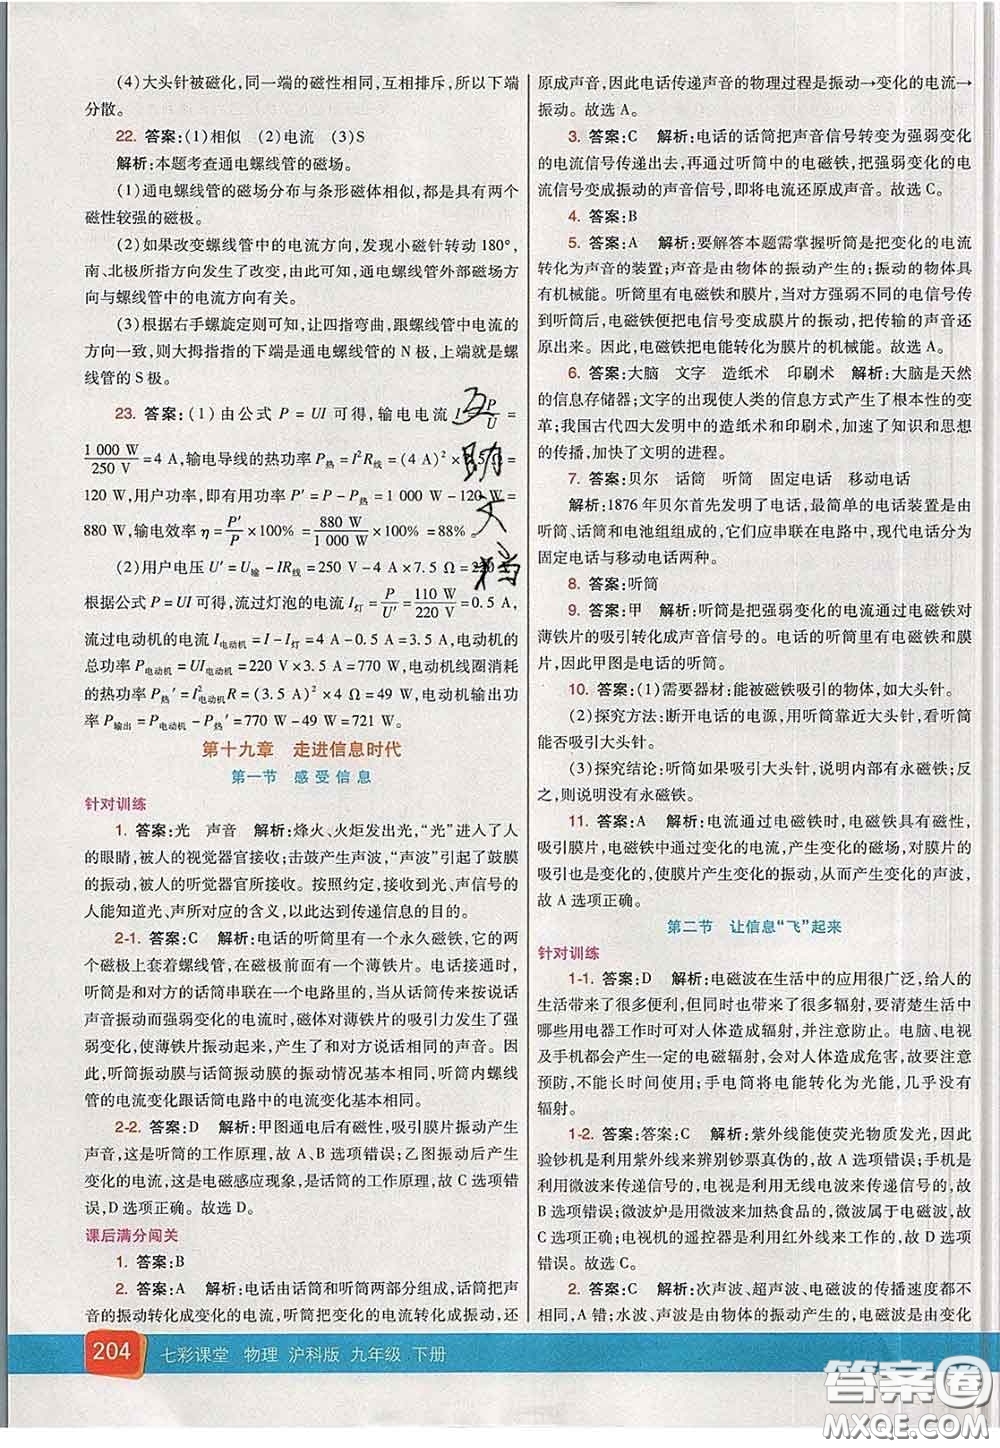 (4)大头针被磁化,同一端的磁性相同,互相排斥,所以下端
分散。
22. 答案:(1)相似 (2)电流 (3)S
解析:本题考查通电螺线管的磁场。
(1)通电螺线管的磁场分布与条形磁体相似,都是具有两个
磁性较强的磁极。
(2)如果改变螺线管中的电流方向,发现小磁针转动180°,
南、北极所指方向发生了改变,由此可知,通电螺线管外部磁场方
向与螺线管中的电流方向有关。
(3)根据右手螺旋定则可知,让四指弯曲,跟螺线管中电流的
方向一致,则大拇指指的下端是通电螺线管的 N 极,上端就是螺
线管的 S 极。
23. 答案:(1) 由公式 P = UI 可得,输电电流 I = P/U =
1 000 W/250 V = 4 A,输电导线的热功率 P热 = I²R线 = (4 A)² ×
120 W,用户功率,即有用功率 P′ = P - P热 = 1 000 W - 120 W =
880 W,输电效率 η = P′/P × 100% = 880 W/1 000 W × 100% = 88%。
(2)用户电压 U′ = U输 - IR线 = 250 V - 4 A × 7.5 Ω = 220 V
根据公式 P = UI 可得,流过灯泡的电流 I灯 = P/U′ = 110 W/220 V = 0.5 A,
流过电动机的电流 I电动机 = I - I灯 = 4 A - 0.5 A = 3.5 A,电动机的
总功率 P电动机 = UI电动机 = 220 V × 3.5 A = 770 W,电动机线圈消耗
的热功率 P热′ = I²电动机R = (3.5 A)² × 4 Ω = 49 W,电动机输出功
率 P输出 = P电动机 - P热′ = 770 W - 49 W = 721 W。
第十九章 走进信息时代
第一节 感受信息
针对训练
1. 答案:光 声音 解析:烽火、火炬发出光,“光”进入了人
的眼睛,被人的视觉器官接收;击鼓产生声波,“声波”引起了鼓膜
的振动,被人的听觉器官所接收。按照约定,接收到光、声信号的
人能知道光、声所对应的含义,以此达到传递信息的目的。
2-1. 答案:C 解析:电话的听筒里有一个永久磁铁,它的两
个磁极上套着螺线管,在磁极前面有一个薄铁片。电话接通时,
听筒是和对方的话筒串联在一个电路里的,当从话筒传来一个按说话
声音振动而强弱变化的电流时,磁体对薄铁片的吸引力发生了强
弱变化,使薄铁片振动起来,产生了和对方说话相同的声音。因
此,听筒振动膜与话筒振动膜的振动情况基本相同,听筒内螺线
管的电流变化跟话筒电路中的电流变化基本相同。
2-2. 答案:D 解析:甲图通电后有磁性,吸引膜片振动产生
声音,这是听筒的工作原理,故 A、B 选项错误;乙图振动后产生
变化的电流,这是电磁感应现象,是话筒的工作原理,故 C 选项错
误,D 选项正确。故选 D。
课后满分闯关
1. 答案:B
2. 答案:A 解析:电话由话筒和听筒两部分组成,话筒把声
音的振动转化成变化的电流,听筒把变化的电流转化成振动,还
原成声音,因此电话传递声音的物理过程是振动→变化的电流→
振动。故选 A。
3. 答案:C 解析:电话的话筒把声音信号转变为强弱变化
的电流信号传递出去,再通过听筒中的电磁铁,把强弱变化的电
流信号变成振动的声音信号,即将电流还原成声音。故选 C。
4. 答案:B
5. 答案:A 解析:要解答本题需掌握听筒是把变化的电流
转化为声音的装置;声音是由物体的振动产生的;振动的物体具
有机械能。听筒里有电磁铁和膜片,当对方强弱不同的电信号传
到听筒后,电磁铁便把电信号变成膜片的振动,把传输的声音还
原出来。因此,电磁铁把电能转化为膜片的机械能。故选 A。
6. 答案:大脑 文字 造纸术 印刷术 解析:大脑是天然
的信息存储器;文字的出现使人类的信息方式产生了根本性的变
革;我国古代四大发明中的造纸术和印刷术,加速了知识和思想
的传播,加快了文明的进程。
7. 答案:贝尔 话筒 听筒 固定电话 移动电话
解析:1876 年贝尔首先发明了电话,最简单的电话装置是由
听筒、话筒和电池组组成的,它们应串联在电路中,现代电话分为
固定电话与移动电话两种。
8. 答案:听筒
9. 答案:甲 解析:听筒是把强弱变化的电流通过电磁铁对
薄铁片的吸引转化成声音信号的。电话的听筒里有电磁铁和膜
片,因此甲图是电话的听筒。
10. 答案:(1)需要器材:能被磁铁吸引的物体,如大头针。
(2)探究方法:断开电话的电源,用听筒靠近大头针,看听筒
能否吸引大头针。
(3)探究结论:听筒如果吸引大头针,说明内部有永磁铁;反
之,则说明没有永磁铁。
11. 答案:A 解析:电流通过电磁铁时,电磁铁具有磁性,
吸引膜片,电磁铁中通过变化的电流,产生变化的磁场,对膜片的
吸引也是变化的,使膜片产生变化的振动,从而产生变化的声波,
故 A 选项正确。
第二节 让信息“飞”起来
针对训练
1-1. 答案:D 解析:电磁波在生活中的应用很广泛,给人的
生活带来了很多便利,但同时也带来了很多辐射,要清楚生活中
哪些用电器工作时可对人体造成辐射,并注意防止。电脑、电视
及手机都会产生一定的电磁辐射,会对人体造成危害,故要注意
预防,不能长时间使用;手电筒将电能转化为光能,几乎没有
辐射。
1-2. 答案:答案:C 解析:紫外线能使荧光物质发光,因此
验钞机是利用紫外线来辨别钞票真伪的,故 A 选项错误;手机是
利用微波来传递信号的,电视是利用无线电波来传递信号的,故 B
选项错误;微波炉是用微波来加热食品的,微波属于电磁波,故 C
选项正确;电视机的遥控器是利用红外线来工作的,故 D 选项
错误。故选 C。
2. 答案:C 解析:次声波、超声波、电磁波的传播速度都不
相同,A 错;水波、声波是由物体的振动产生的,电磁波是由变化
互助文档
204 七彩课堂 物理 沪科版 九年级 下册
答案圈
MXQE.COM